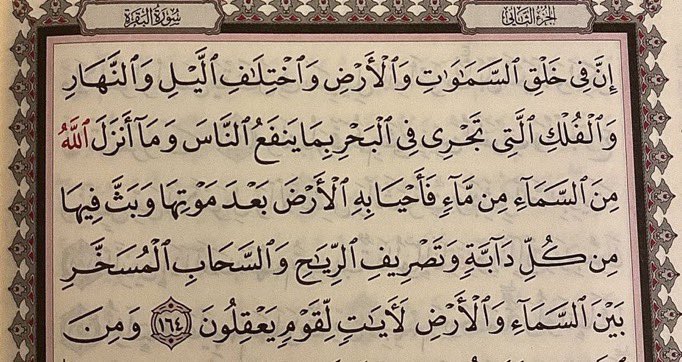 الجزء الثاني
سورة البقرة
إِنَّ فِي خَلْقِ ٱلسَّمَٰوَٰتِ وَٱلْأَرْضِ وَٱخْتِلَٰفِ ٱلَّيْلِ وَٱلنَّهَارِ
وَٱلْفُلْكِ ٱلَّتِي تَجْرِى فِي ٱلْبَحْرِ بِمَا يَنفَعُ ٱلنَّاسَ وَمَآ أَنزَلَ ٱللَّهُ
مِنَ ٱلسَّمَآءِ مِن مَّآءٍ فَأَحْيَا بِهِ ٱلْأَرْضَ بَعْدَ مَوْتِهَا وَبَثَّ فِيهَا
مِن كُلِّ دَآبَّةٍ وَتَصْرِيفِ ٱلرِّيَٰحِ وَٱلسَّحَابِ ٱلْمُسَخَّرِ
بَيْنَ ٱلسَّمَآءِ وَٱلْأَرْضِ لَأٓيَٰتٍ لِّقَوْمٍ يَعْقِلُونَ ١٦٤ وَمِنَ